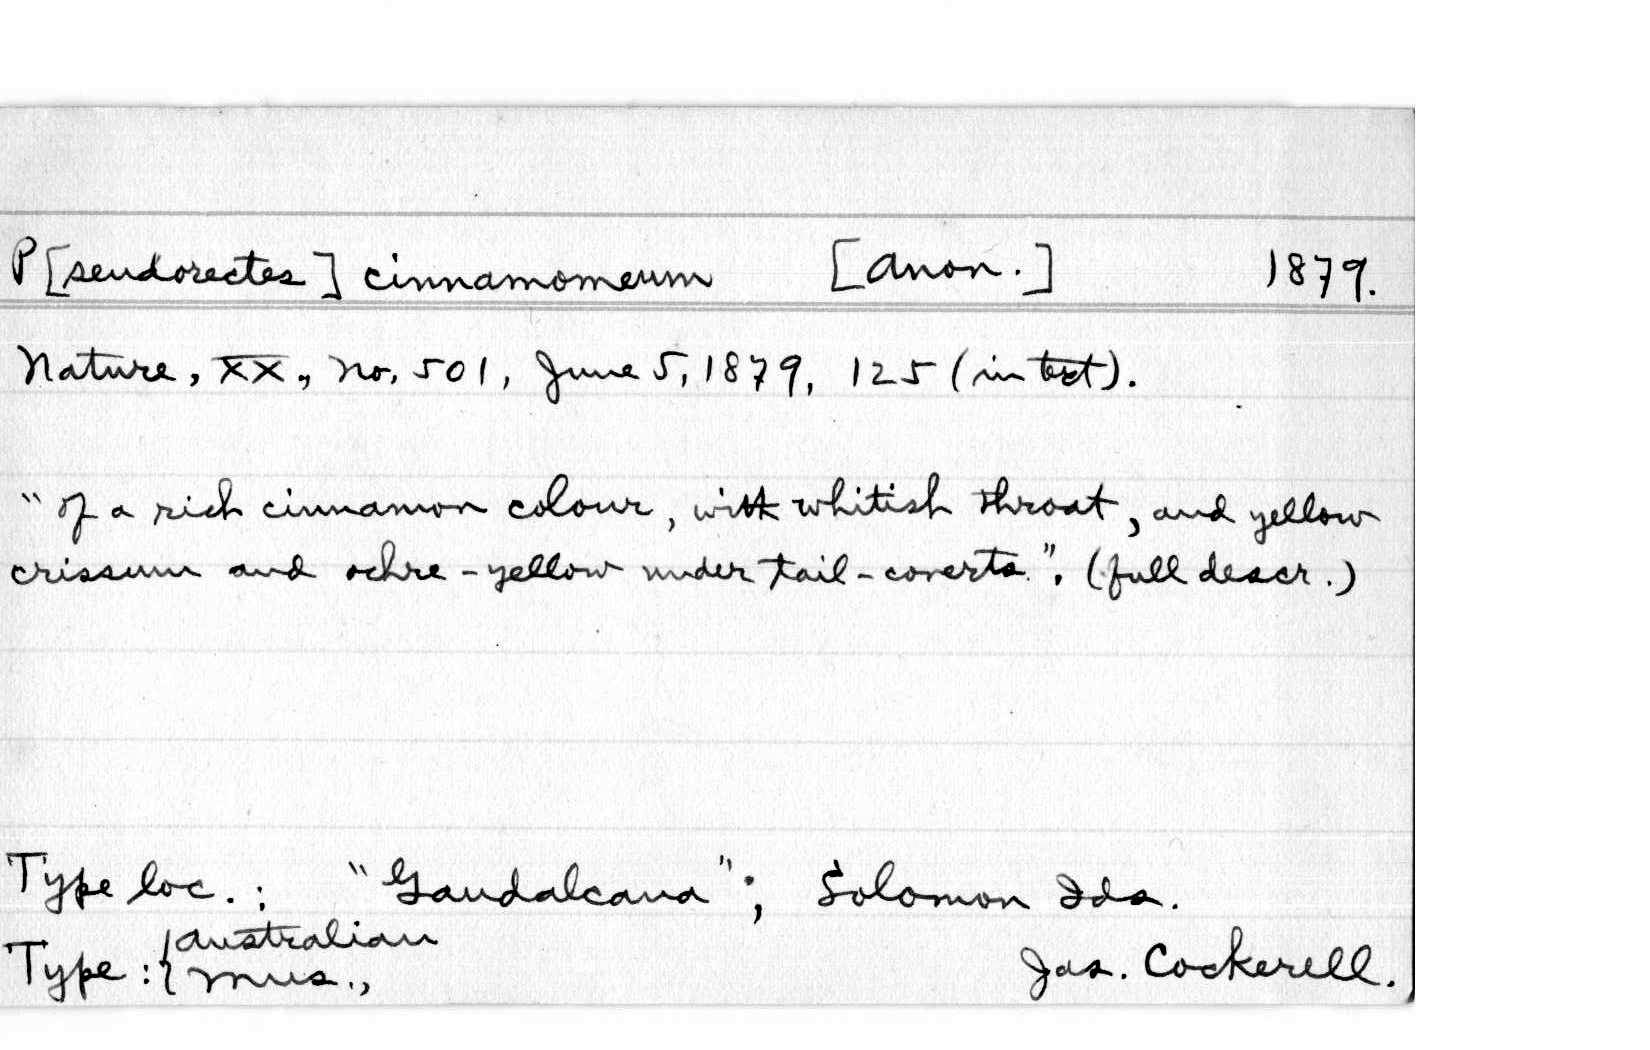 P[seudorectes] cinnamomeum [anon.] 1879.
Nature, XX., no. 501, June 5, 1879, 125 (in text).
"of a rich cinnamon colour, with whitish throat, and yellow
crissum and ochre-yellow under tail-coverts.". (full descr.)
Type loc.: "Gaudalcana"; Solomon Ids.
Type: {Australian
Mus., Jas. Cockerell.